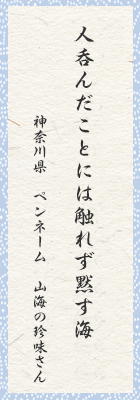 人呑んだことには触れず黙す海
神奈川県　ペンネーム　山海の珍味さん